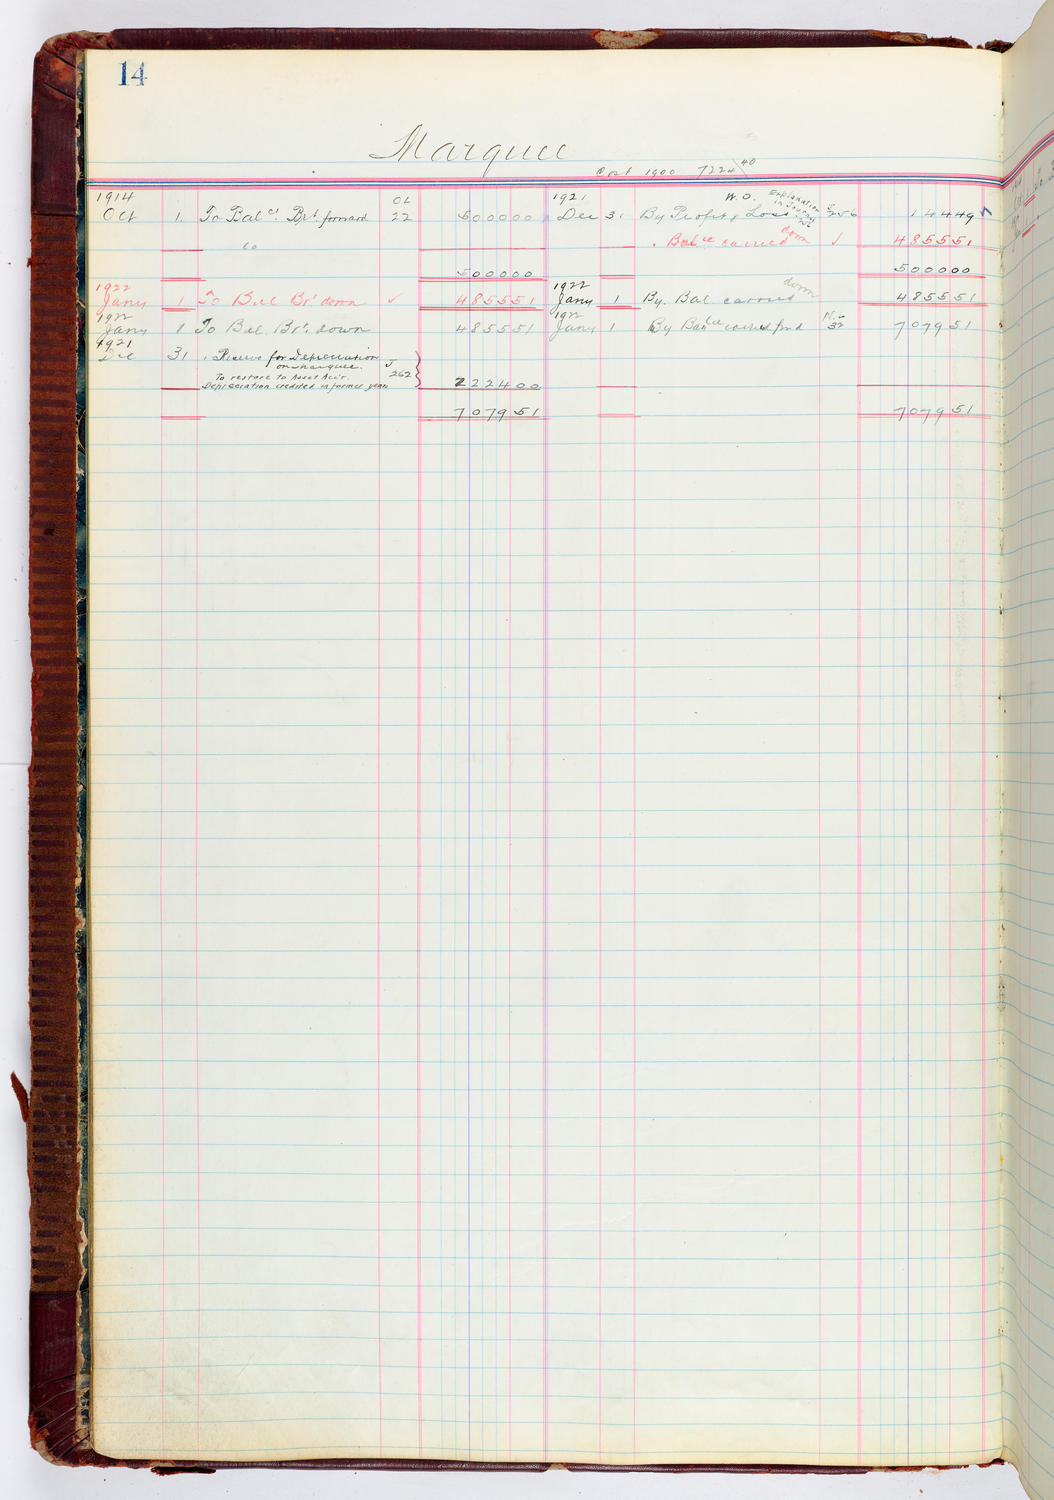 14
Marquee
Cost 1900 7224\40
1914 OL 1921 W.O. Explanation in Journal
Oct 1. To Balce Brt. forward 22 500000 Dec 31 By Profit & Loss J 256 14449
" Balce carried down ✓ 485551
500000 500000
1922 1922
Jany 1 To Bal Brt down ✓ 485551 Jany 1 By. Bal carried down 485551
1922 1922
Jany 1 To Bal. Brt. down 485551 Jany 1 By Balce carried fwd 32 707951
1921
Dec 31 " Reserve for Depreciation
on marquee. J
To restore to Asset Acc't. 262
Depreciation credited in former years 222400
707951 707951